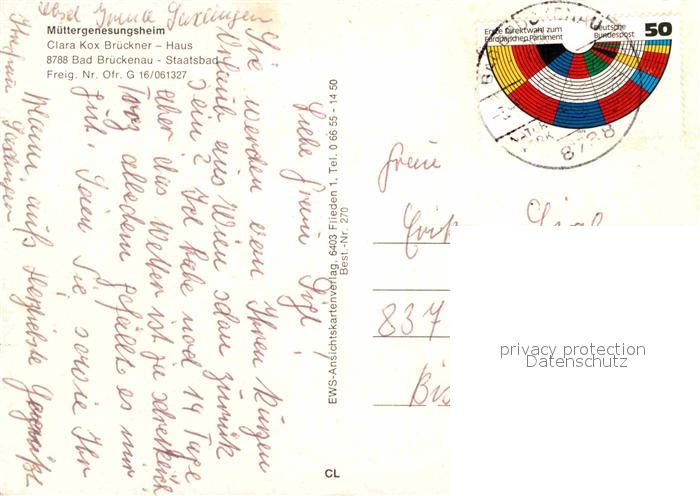 Müttergenesungsheim
Clara Kox Brückner - Haus
8788 Bad Brückenau - Staatsbad
Freig. Nr. Ofr. G 16/061327
Liebe Frau
Sie werden von Ihrem kurzen
Urlaub aus Wien schon zurück
sein? Ich habe noch 14 Tage
aber das Wetter ist zu schrecklich
Trotz alledem gefällt es mir
gut. Seien Sie sowie Ihr
Mann, aufs Herzlichste gegrüßt
Ihre Frau
EWS-Ansichtskartenverlag, 6403 Flieden 1, Tel. 0 66 55 - 14 50
Best.-Nr. 270
Erste Direktwahl zum
Europäischen Parlament
Deutsche
Bundespost
50
8788
Frau
837
privacy protection
Datenschutz
CL